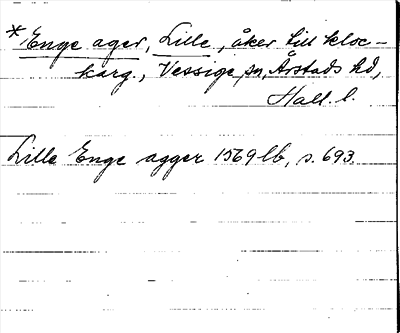 *Enge ager, Lille, åker till kloc-
karg., Vessige sn, Årstads hd,
Hall. l.
Lille Enge agger 1569 lb, s. 693.